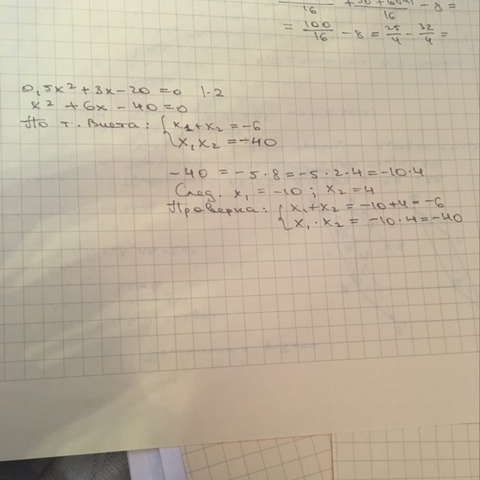 16 16 - 8 =
= 100/16 - 8 = 25/4 - 32/4 =
0,5x² + 3x - 20 = 0 |·2
x² + 6x - 40 = 0
По т. Виета: { x₁ + x₂ = -6
x₁x₂ = -40
-40 = -5 · 8 = -5 · 2 · 4 = -10 · 4
След. x₁ = -10 ; x₂ = 4
Проверка: { x₁ + x₂ = -10 + 4 = -6
x₁ · x₂ = -10 · 4 = -40